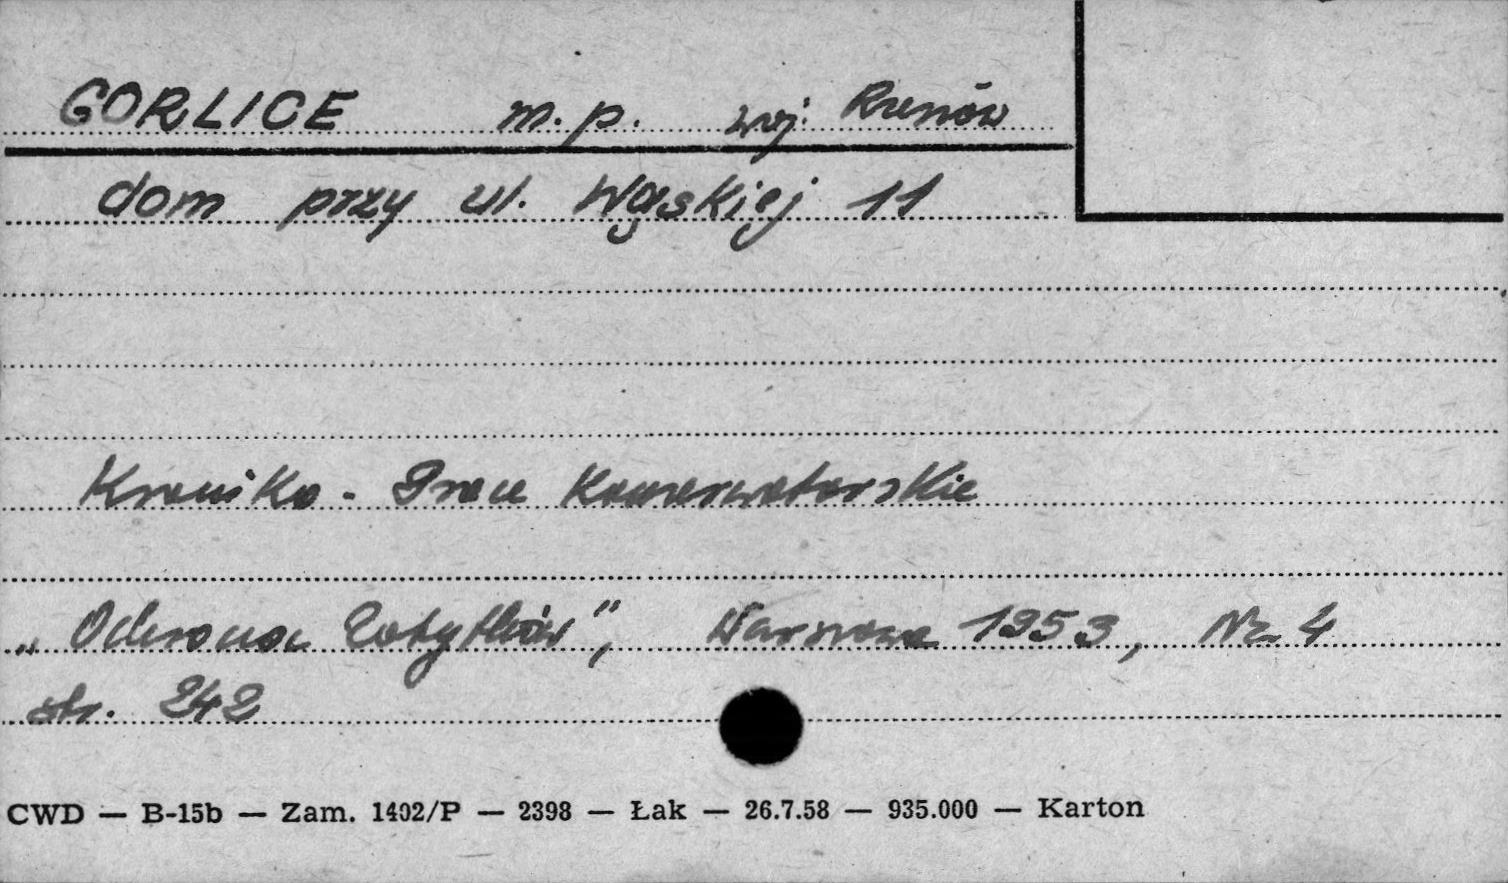 GORLICE m.p. woj. Rzeszów
dom przy ul. Wąskiej 11
Kronika - Prace Konserwatorskie
„Ochrona Zabytków”, Warszawa 1953, Nr. 4
str. 242
CWD — B-15b — Zam. 1492/P — 2398 — Łak — 26.7.58 — 935.000 — Karton